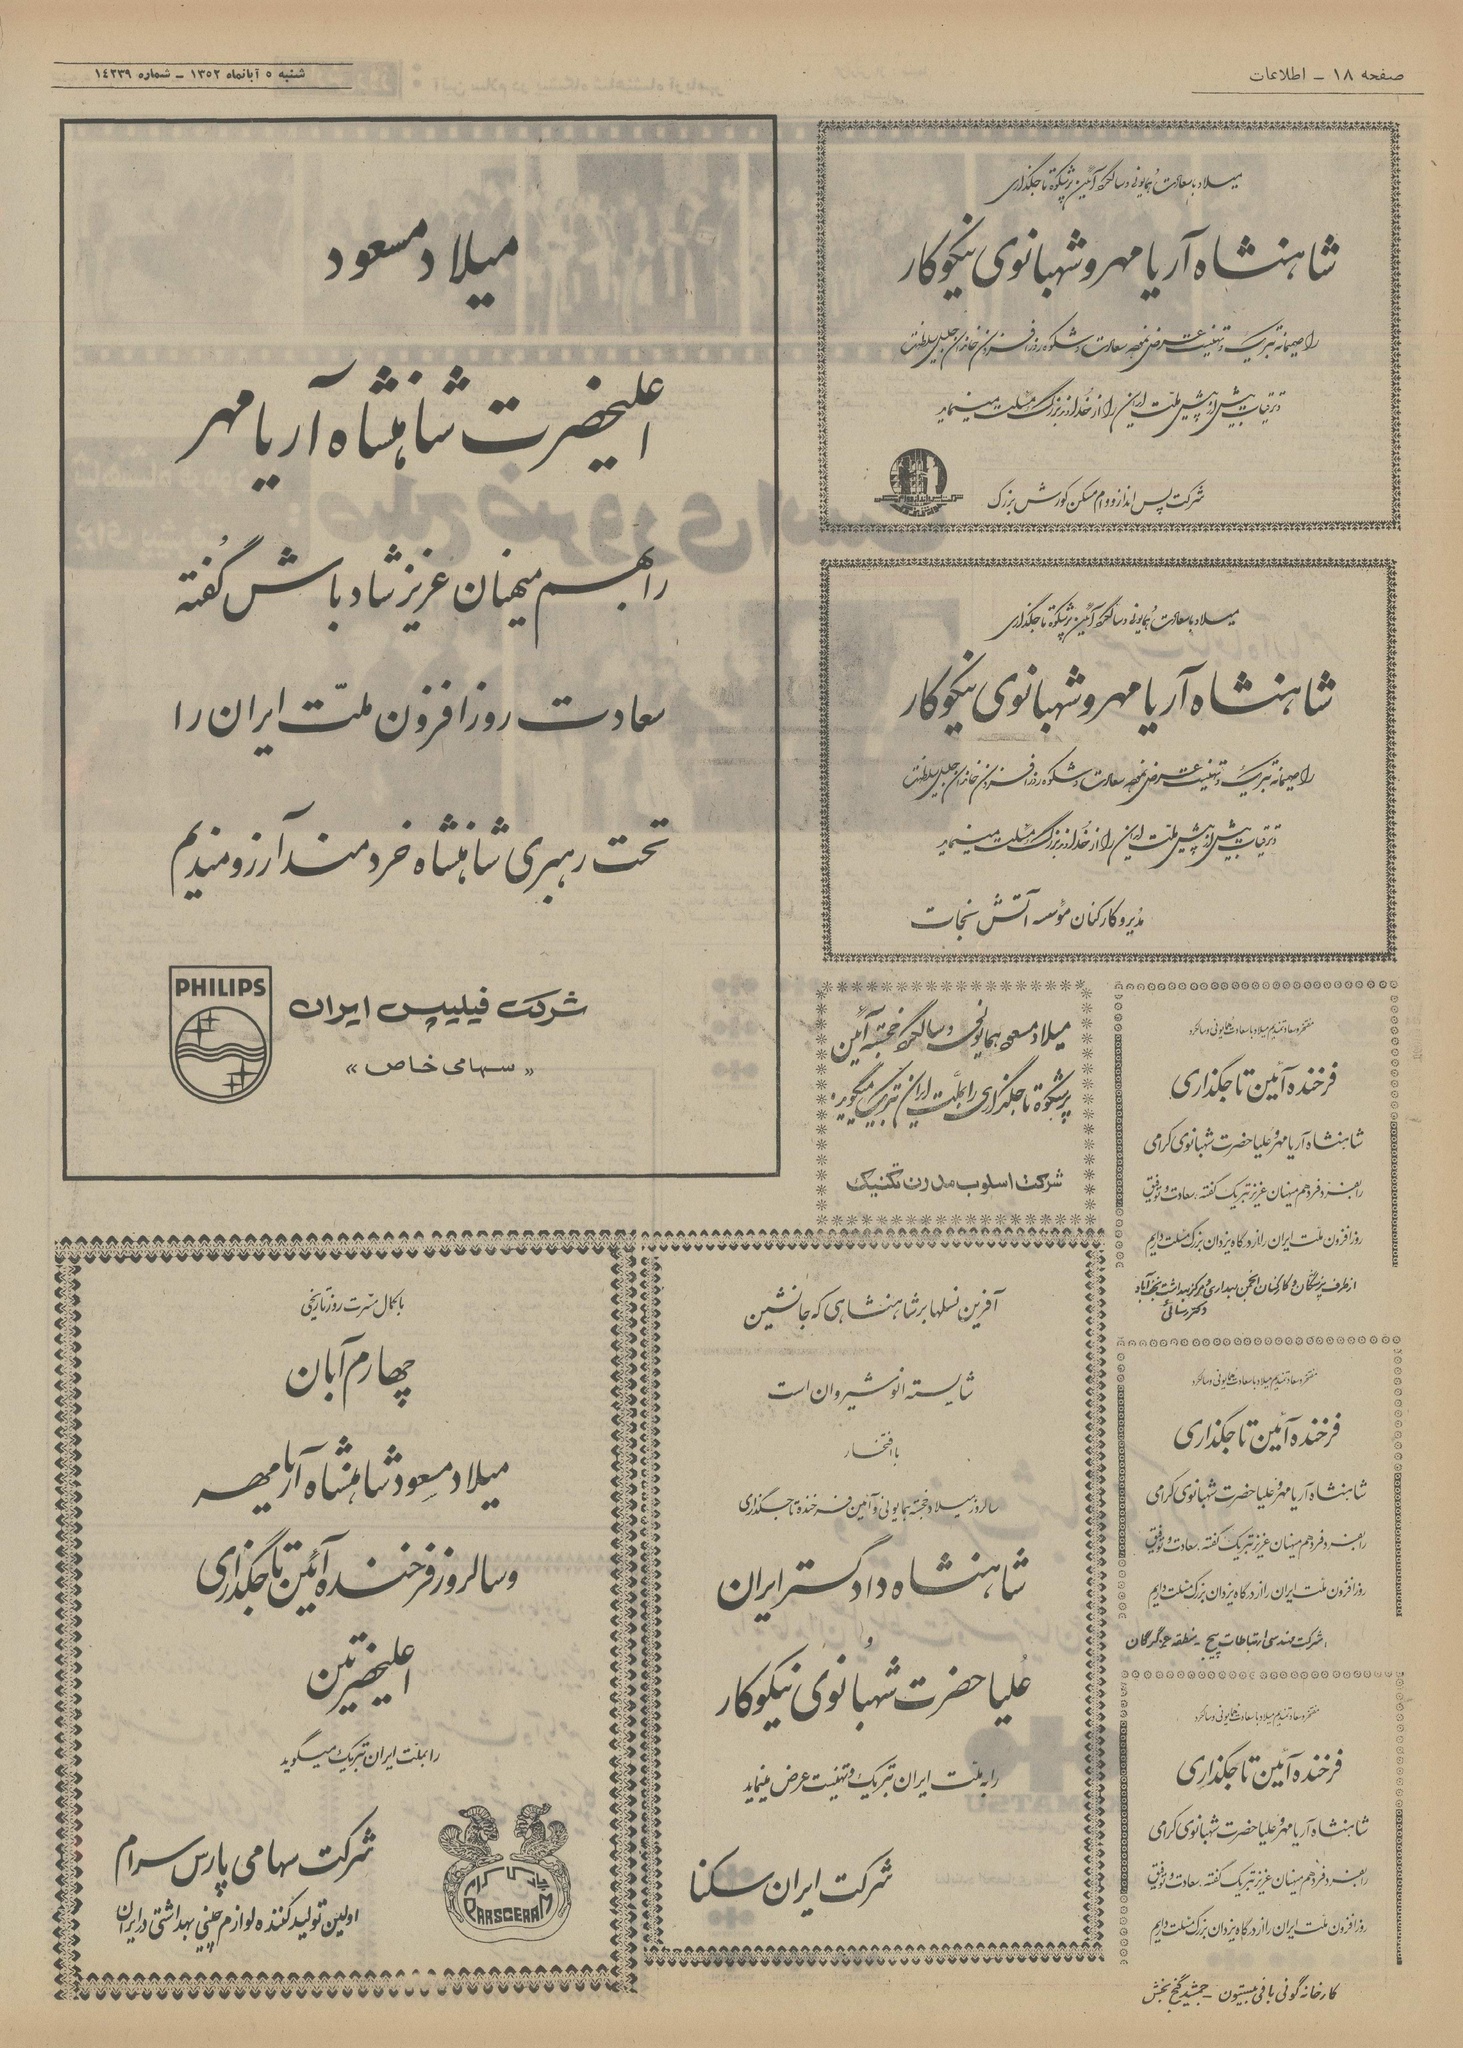 صفحه ۱۸ ـ اطلاعات
شنبه ۵ آبانماه ۱۳۵۲ ـ شماره ۱۴۲۳۹
میلاد باسعادت همایونی و سالگرد آئین پرشکوه تاجگذاری
شاهنشاه آریامهر و شهبانوی نیکوکار
را صمیمانه تبریک و تهنیت عرض نموده سعادت و شکوه روزافزون خاندان جلیل سلطنت
و ترقیات بیش از پیش ملت ایران را از خداوند بزرگ مسئلت مینماید
شرکت پس انداز و وام مسکن کورش بزرگ
میلاد باسعادت همایونی و سالگرد آئین پرشکوه تاجگذاری
شاهنشاه آریامهر و شهبانوی نیکوکار
را صمیمانه تبریک و تهنیت عرض نموده سعادت و شکوه روزافزون خاندان جلیل سلطنت
و ترقیات بیش از پیش ملت ایران را از خداوند بزرگ مسئلت مینماید
مدیر و کارکنان مؤسسه آتش نجات
میلاد مسعود
اعلیحضرت شاهنشاه آریامهر
را بهم میهنان عزیز شادباش گفته
سعادت روزافزون ملّت ایران را
تحت رهبری شاهنشاه خردمند آرزومندیم
PHILIPS
شرکت فیلیپس ایران
«سهامی خاص»
مفتخر و سعادتمندیم میلاد باسعادت همایونی و سالگرد
فرخنده آئین تاجگذاری
شاهنشاه آریامهر و علیاحضرت شهبانوی گرامی
را بفرد فرد هم میهنان عزیز تبریک گفته، سعادت و توفیق
روزافزون ملت ایران را از درگاه یزدان بزرگ مسئلت داریم
از طرف پزشکان و کارکنان انجمن بهداری و مرکز بهداشت نجف‌آباد
میلاد مسعود همایونی و سالگرد خجسته آئین
پرشکوه تاجگذاری را بملّت ایران تبریک میگوید.
شرکت اسلوب مدرن تکنیک
مفتخر و سعادتمندیم میلاد باسعادت همایونی و سالگرد
فرخنده آئین تاجگذاری
شاهنشاه آریامهر و علیاحضرت شهبانوی گرامی
را بفرد فرد هم میهنان عزیز تبریک گفته، سعادت و توفیق
روزافزون ملت ایران را از درگاه یزدان بزرگ مسئلت داریم
شرکت مهندسی ارتباطات پیج - منطقه گرگان
مفتخر و سعادتمندیم میلاد باسعادت همایونی و سالگرد
فرخنده آئین تاجگذاری
شاهنشاه آریامهر و علیاحضرت شهبانوی گرامی
را بفرد فرد هم میهنان عزیز تبریک گفته، سعادت و توفیق
روزافزون ملت ایران را از درگاه یزدان بزرگ مسئلت داریم
کارخانه گونی بافی بیستون - جمشید گنج بخش
آفرین نسلها بر شاهنشاهی که جانشین
شایسته انوشیروان است
با افتخار
سالروز میلاد خجسته همایونی و آئین فرخنده تاجگذاری
شاهنشاه دادگستر ایران
و
عُلیاحضرت شهبانوی نیکوکار
را به ملت ایران تبریک و تهنیت عرض مینماید
شرکت ایران سکنا
با کمال مسرت روز تاریخی
چهارم آبان
میلاد مسعود شاهنشاه آریامهر
و سالروز فرخنده آئین تاجگذاری
اعلیحضرتین
را بملت ایران تبریک میگوید
شرکت سهامی پارس سرام
اولین تولید کننده لوازم چینی بهداشتی در ایران
پارس سرام
PARSCERAM